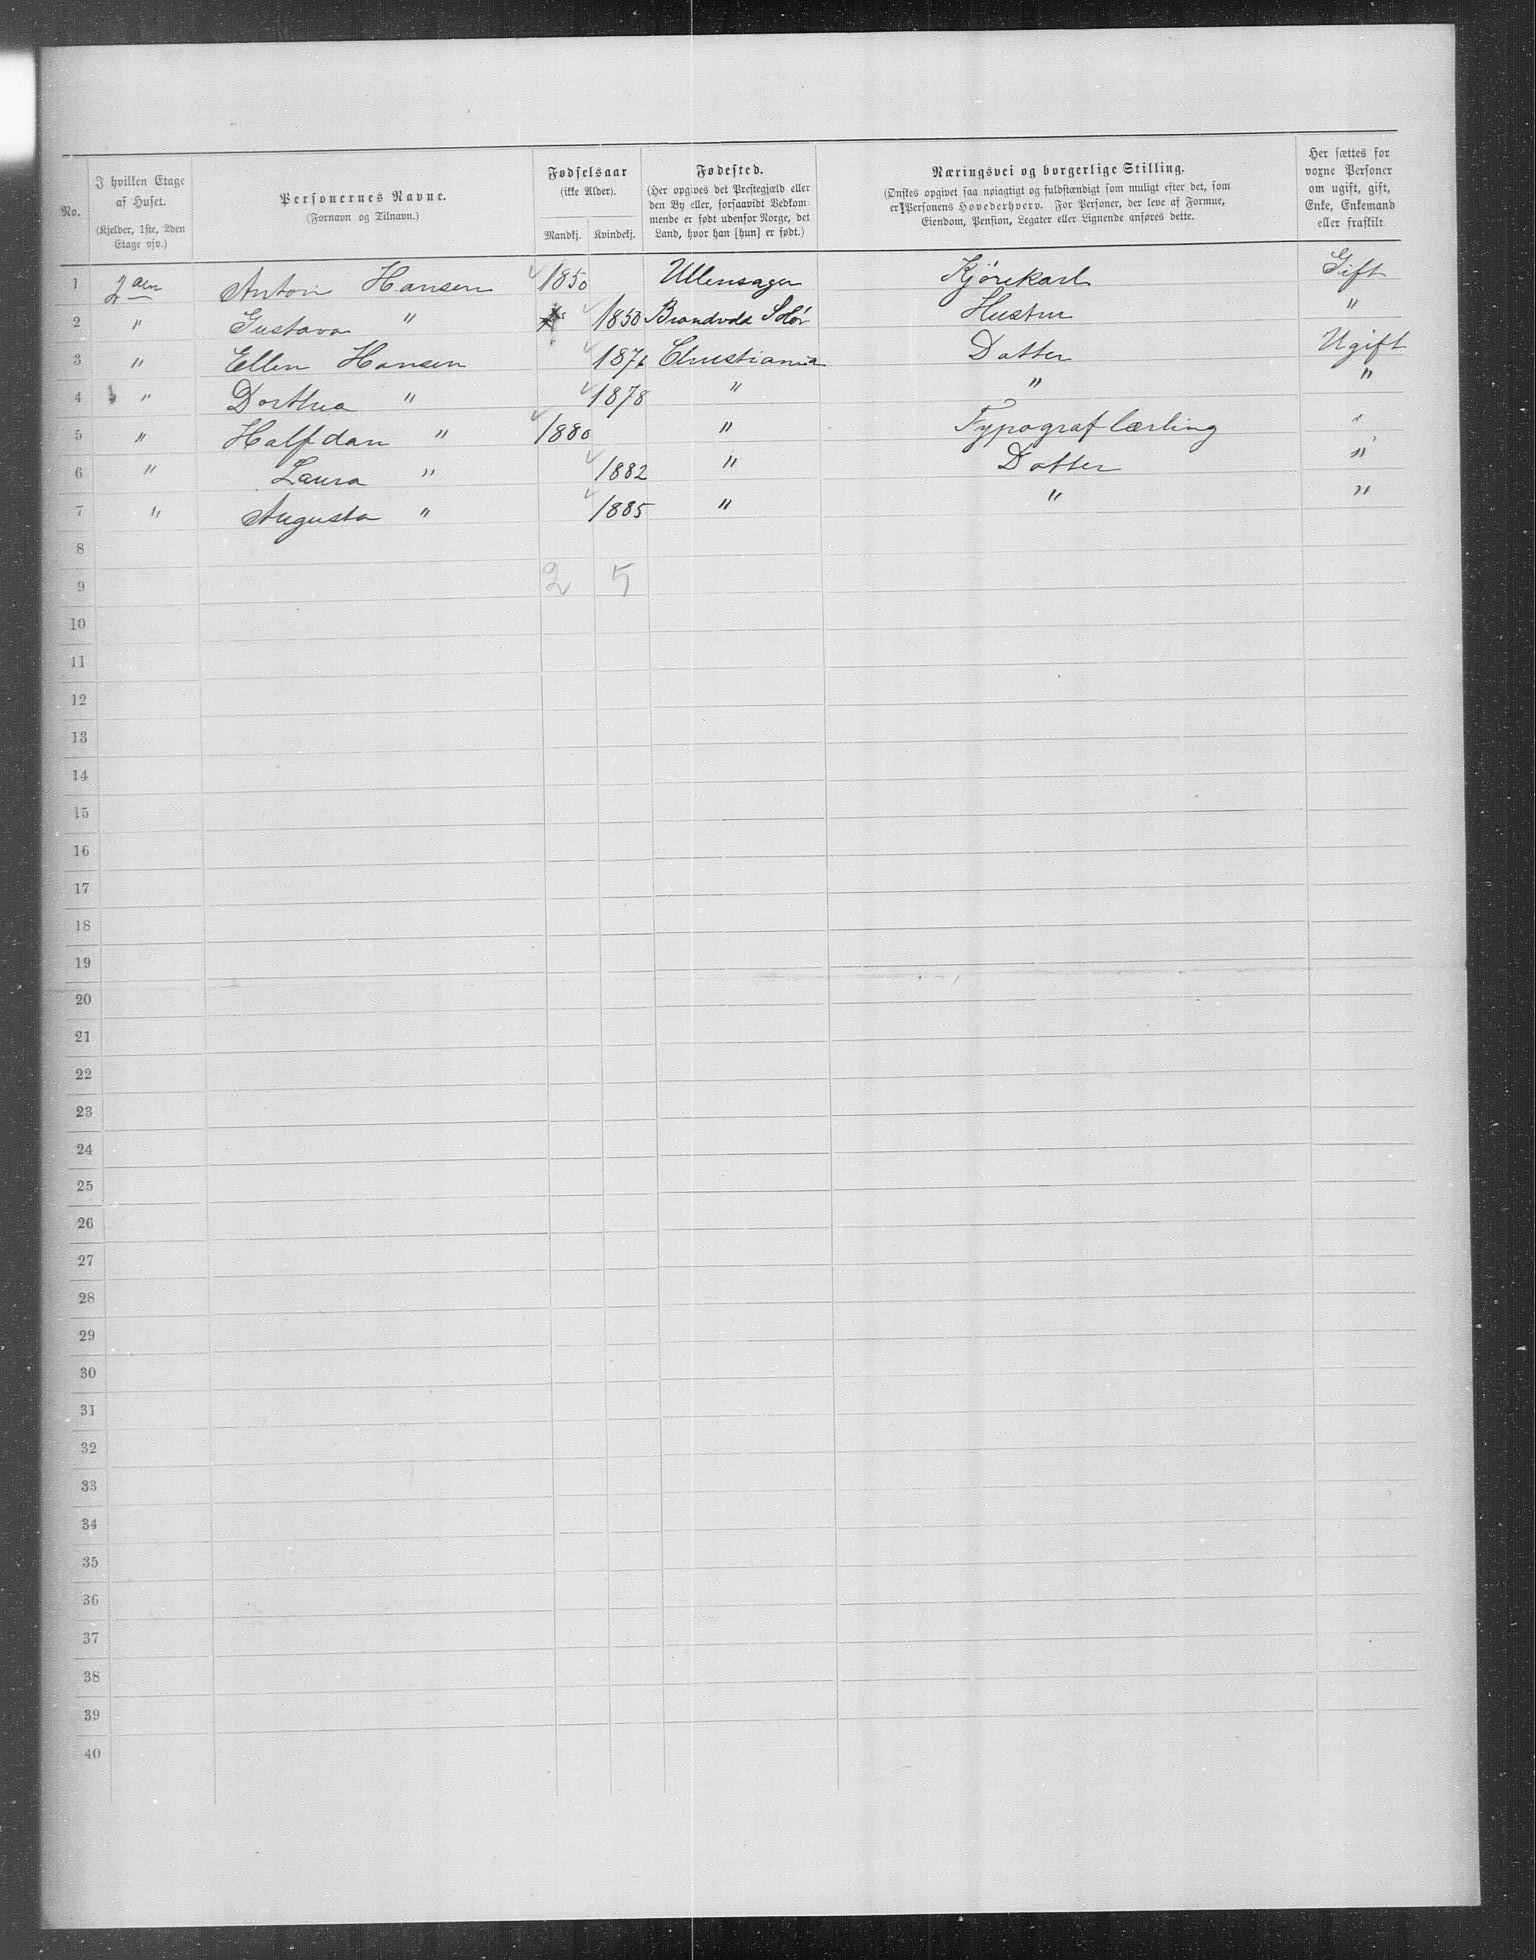 No. | I hvilken Etage af Huset. (Kjelder, 1ste, 2den Etage osv.) | Personernes Navne. (Fornavn og Tilnavn.) | Fødselsaar (ikke Alder). Mandkj. | Kvindekj. | Fødested. (Her opgives det Prestegjæld eller den By eller, forsaavidt Vedkommende er født udenfor Norge, det Land, hvor han [hun] er født.) | Næringsvei og borgerlige Stilling. (Ønskes opgivet saa nøiagtigt og fuldstændigt som muligt efter det, som er Personens Hovederhverv. For Personer, der leve af Formue, Eiendom, Pension, Legater eller Lignende anføres dette. | Her sættes for voxne Personer om ugift, gift, Enke, Enkemand eller fraskilt
1 2den Anton Hansen 1850 Ullensager Kjørekarl Gift
2 " Gustava " 1850 Brandvold Solør Hustru "
3 " Ellen Hansen 1876 Christiania Datter Ugift
4 " Dorthea " 1878 " " "
5 " Halfdan " 1880 " Typograflærling "
6 " Laura " 1882 " Datter "
7 " Augusta " 1885 " " "
8
9 2 5
10
11
12
13
14
15
16
17
18
19
20
21
22
23
24
25
26
27
28
29
30
31
32
33
34
35
36
37
38
39
40